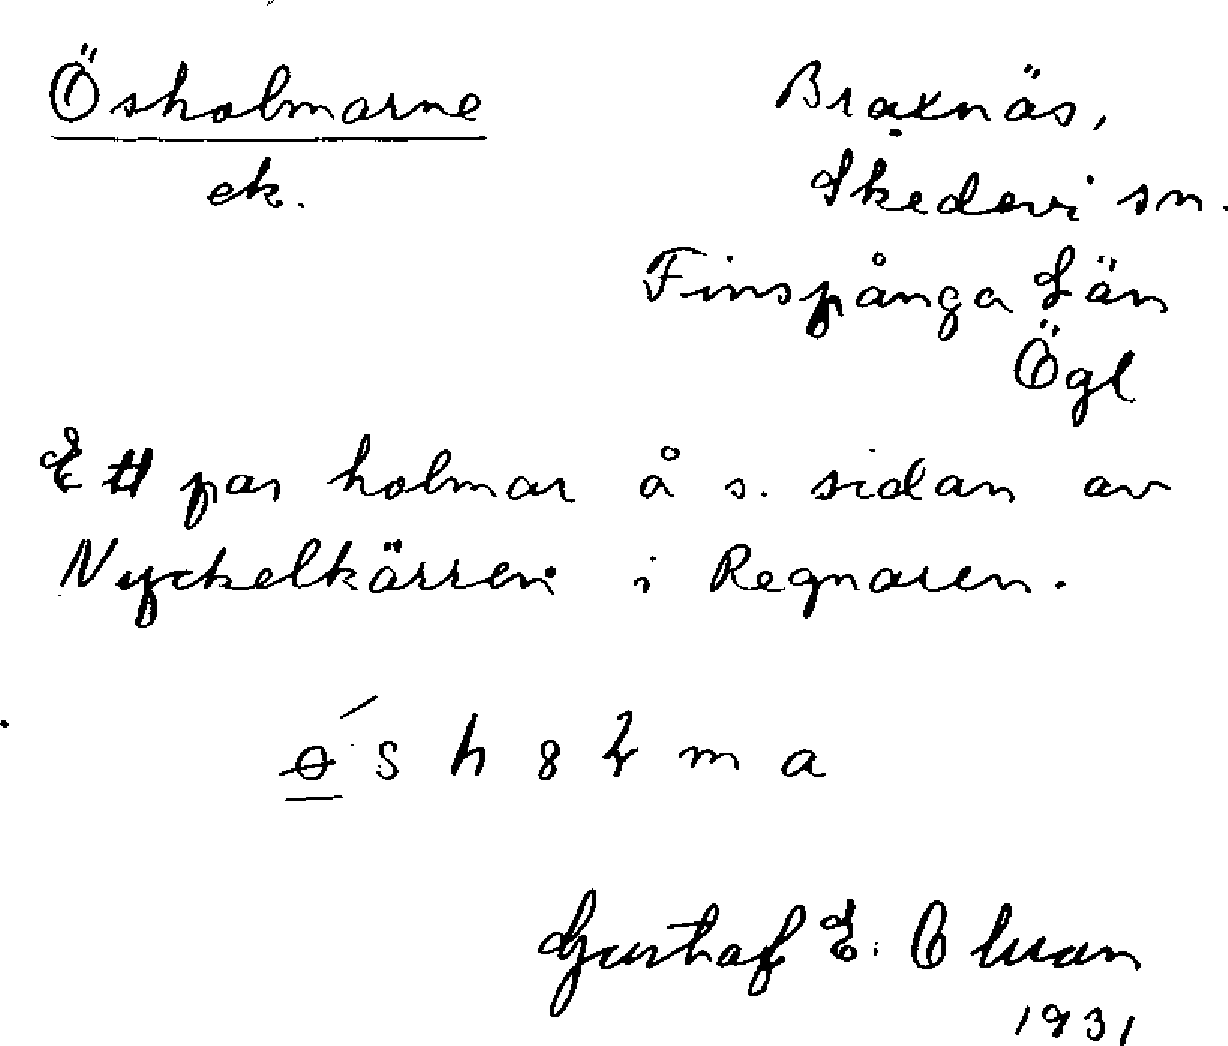 Ösholmarne
ek.
Braxnäs,
Skedevi sn.
Finspånga Län
Ögl
Ett par holmar å s. sidan av
Nyckelkärren i Regnaren.
Gustaf E. Olsson
1931